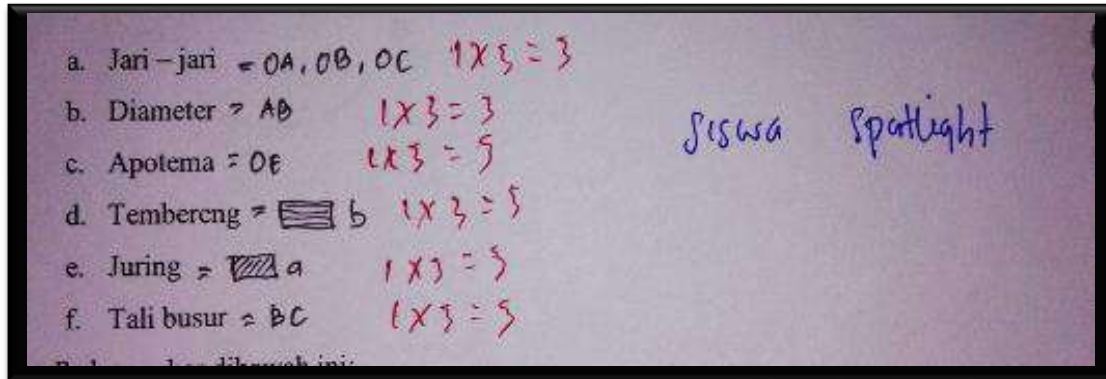 a. Jari – jari = OA, OB, OC 1 x 3 = 3
b. Diameter = AB 1 x 3 = 3
c. Apotema = OE 1 x 3 = 3
d. Tembereng = b 1 x 3 = 3
e. Juring = a 1 x 3 = 3
f. Tali busur = BC 1 x 3 = 3
Siswa Spotlight
dibawah ini: